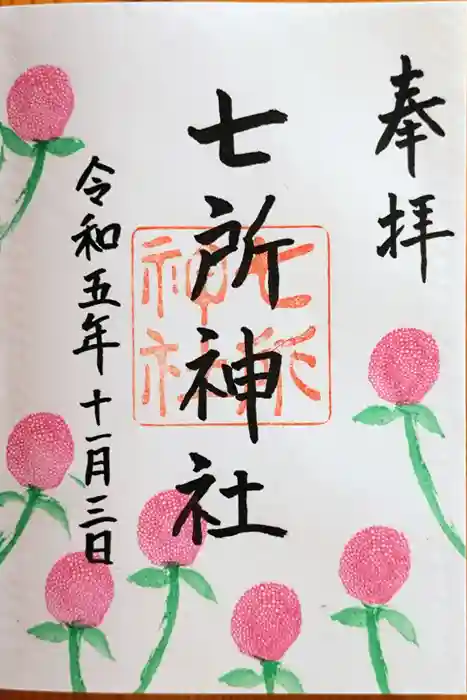 奉拝
七所神社
七所神社
令和五年十一月三日